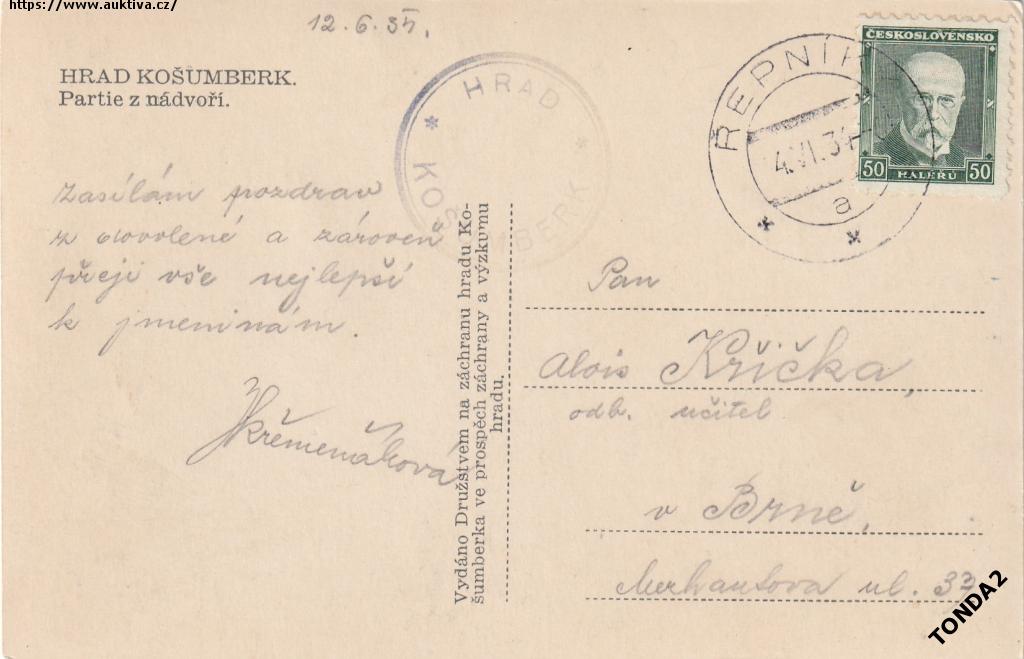 https://www.auktiva.cz/
12.6.35.
HRAD KOŠUMBERK.
Partie z nádvoří.
* HRAD * KOŠUMBERK
ŘEPNÍKY
4.VI.34
a
* *
ČESKOSLOVENSKO
50 HALÉŘŮ 50
Zasílám pozdrav
z dovolené a zároveň
přeji vše nejlepší
k jmeninám.
Křemenáková
Vydáno Družstvem na záchranu hradu Ko-
šumberka ve prospěch záchrany a výzkumu
hradu.
Pan
Alois Křička,
odb. učitel
v Brně,
Merhautova ul. 37
TONDA2